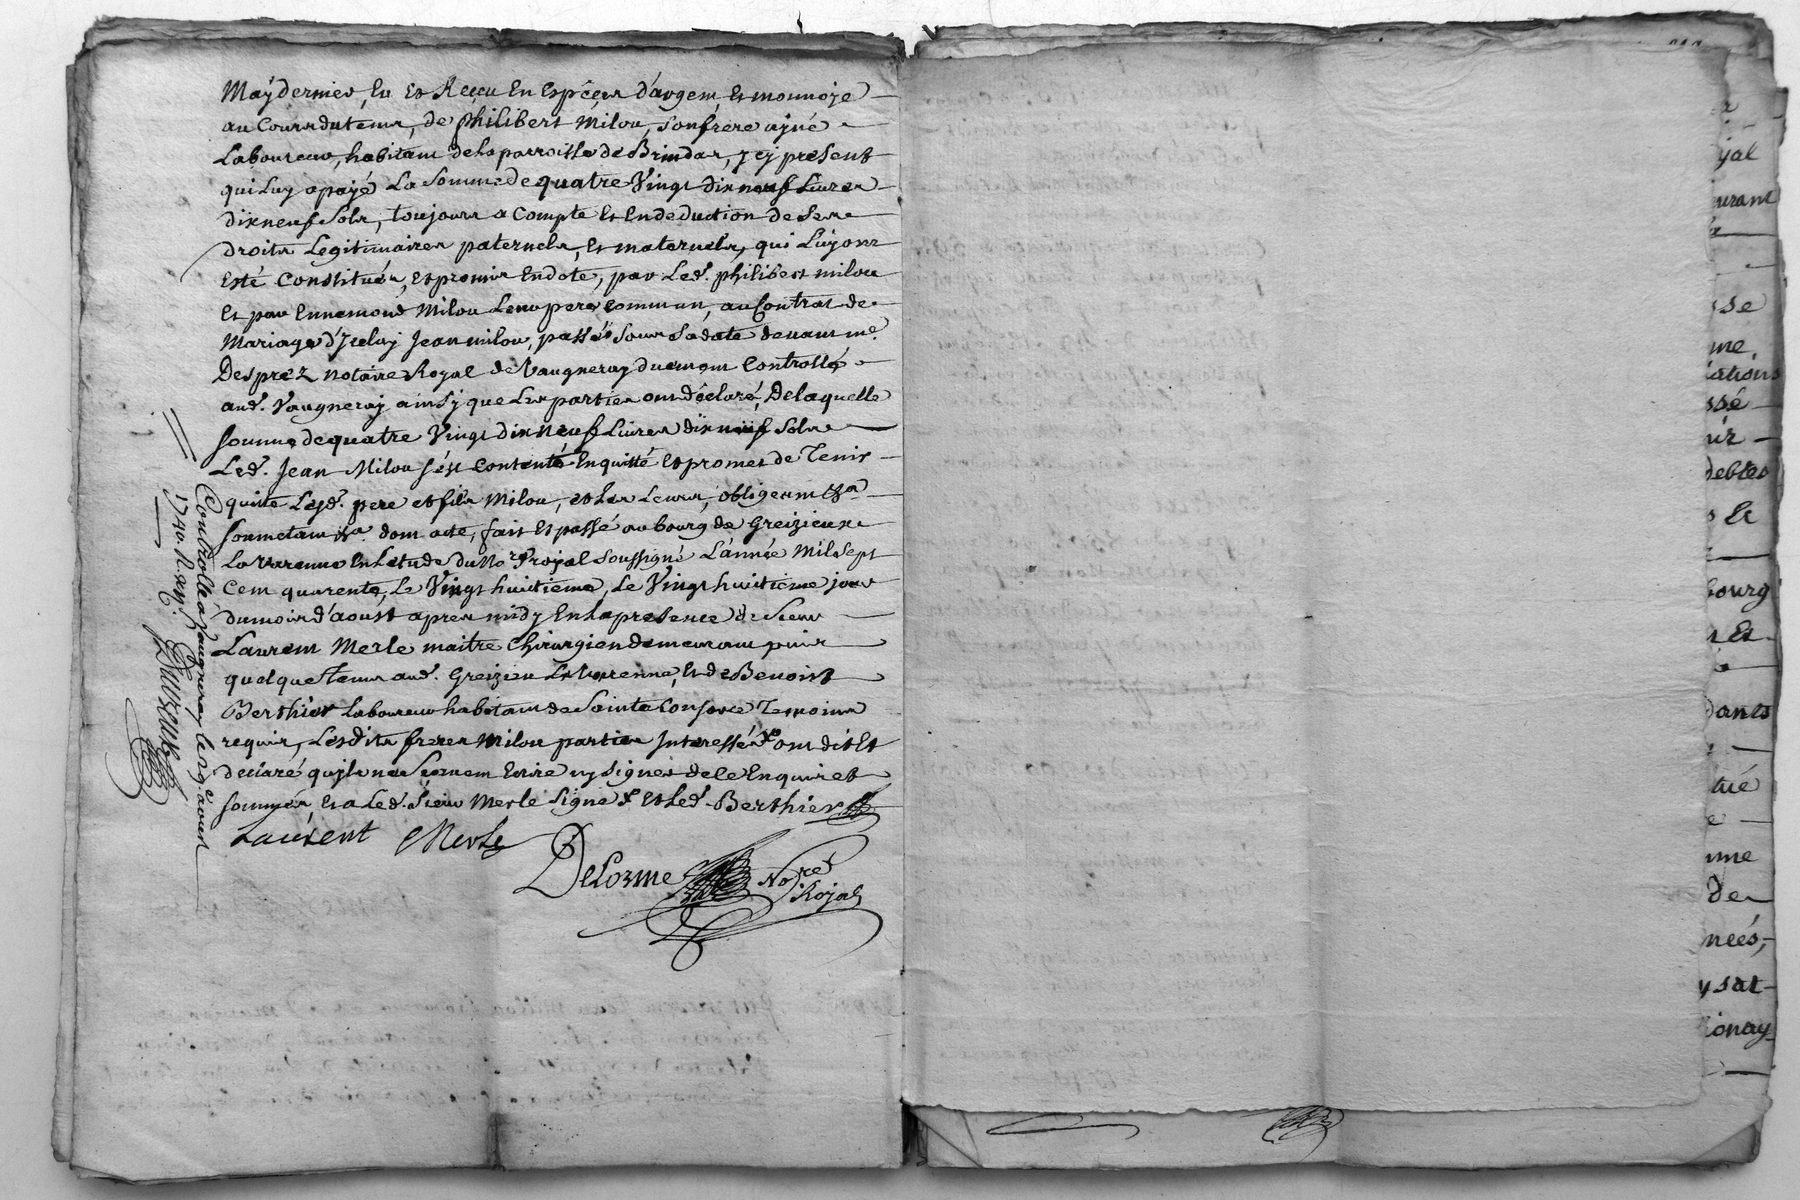 May dernier, Eu et Reçeu En Espéces d'argent, et monnoye
au Cours du tems, de philibert Milou, son frere ayné
Laboureur, habitant de la parroisse de Brindas, jcy present
qui Luy a payé La Somme de quatre Vingt dix neuf Livres
dix neuf Sols, toujours a Compte et En deduction de Ses
droits Legitimaires paternels, et maternels, qui Luy ont
Esté Constitués, et promis En dote, par Led. philibert milou
et par Ennemond Milou Leur pere commun, au Contrat de
Mariage d'Jceluy Jean milou, passé Sous Sa date devant me.
Desprez notaire Royal de Vaugneray duement Controllé
aud. Vaugneray ainsy que Les parties ont déclaré, De laquelle
somme de quatre Vingt dix Neuf Livres dix neuf Sols
Led. Jean Milou s'est Contenté En quitté et promet de Tenir
quitte Lesd. pere et fils Milou, et Les Leurs, obligeant &a
soumetant &a. dont acte, fait et passé au bourg de Greizieux
La Varenne En Letude du No.re Royal soussigné L'année Mil Sept
Cent quarente, Le Vingt huitieme, Le Vingt huitieme jour
du mois d'aoust apres midy En la presence de Sieur
Laurent Merle maitre Chirurgien demeurant puis
quelque Tems aud. Greizieu La Varenne, et de Benoist
Berthier Laboureur habitant de Sainte Consorce Temoins
requis, Lesdits freres Milou parties Interessées ont dit et
declaré qu'ils ne Scavent Ecrire ny Signer de ce Enquis et
sommés, et a Led. Sieur Merle Signé et Led. Berthier
Laurent Merle
Delorme No.re
Royal
Controllé a Vaugneray le 29.e aoust
1740. R.